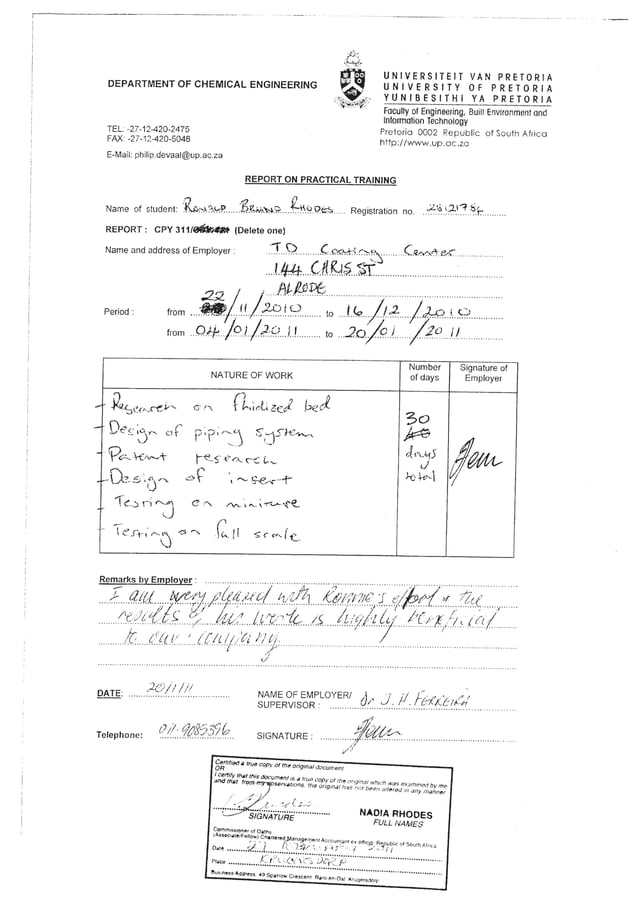 DEPARTMENT OF CHEMICAL ENGINEERING
UNIVERSITEIT VAN PRETORIA
UNIVERSITY OF PRETORIA
YUNIBESITHI YA PRETORIA
Faculty of Engineering, Built Environment and
Information Technology
Pretoria 0002 Republic of South Africa
http://www.up.ac.za
TEL: -27-12-420-2475
FAX: -27-12-420-5048
E-Mail: philip.devaal@up.ac.za
REPORT ON PRACTICAL TRAINING
Name of student: Rhodes Registration no.
REPORT : CPY 311/ (Delete one)
Name and address of Employer : TD Coating Center
144 CHRIS ST
ALRODE
Period : from 22/11/2010 to 16/12/2010
from 04/01/2011 to 20/01/2011
NATURE OF WORK
Number of days
Signature of Employer
- Research on fluidized bed
- Design of piping system
- Patent research
- Design of insert
- Testing on miniture
- Testing on full scale
30
days
total
Remarks by Employer :
I am very pleased with Ronnie's effort & the
results of his work is highly beneficial
to our company
DATE: 20/1/11
NAME OF EMPLOYER/
SUPERVISOR : Dr J.H. FERREIRA
Telephone: 011-9085396
SIGNATURE :
Certified a true copy of the original document
OR
I certify that this document is a true copy of the original which was examined by me
and that from my observations, the original has not been altered in any manner
SIGNATURE
NADIA RHODES
FULL NAMES
Commissioner of Oaths
(Associate/Fellow) Chartered Management Accountant ex officio: Republic of South Africa
Date 27
Place KRUGERSDORP
Business Address: 49 Sparrow Crescent, Rant-en-Dal, Krugersdorp